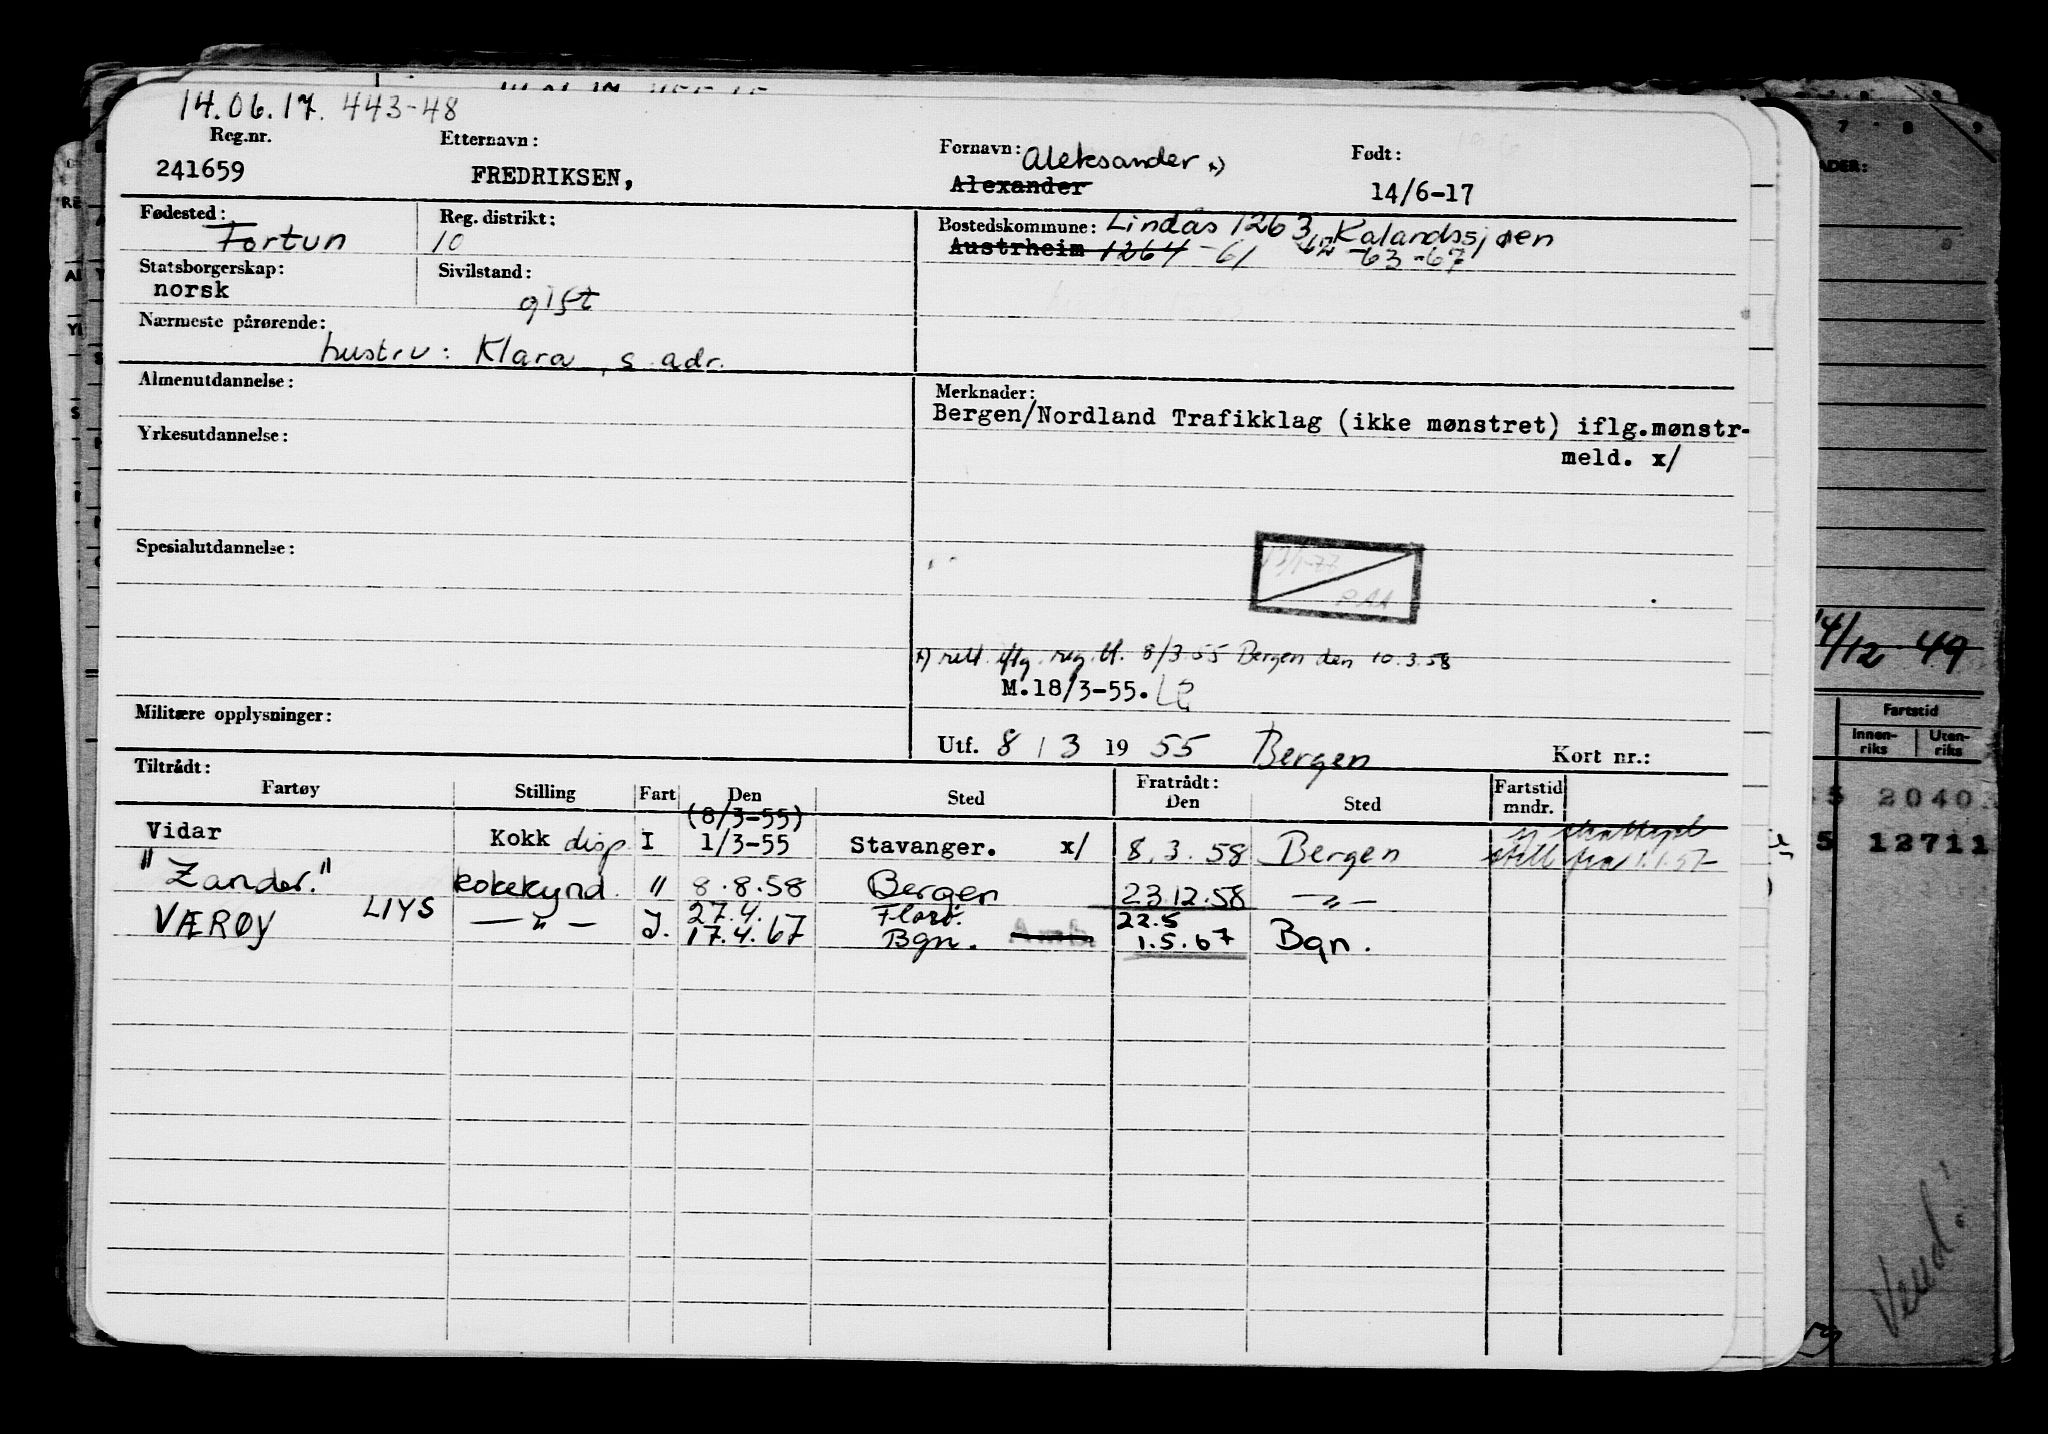 14.06.17. 443-48
Reg.nr. Etternavn: Fornavn: Aleksander x) Født:
241659 FREDRIKSEN, Alexander 14/6-17
Fødested: Reg. distrikt: Bostedskommune: Lindås 1263, Kalandssjøen
Fortun 10 Austrheim 1264 -61 62 -63 -67
Statsborgerskap: Sivilstand:
norsk gift
Nærmeste pårørende:
hustru: Klara, s. adr.
Almenutdannelse: Merknader:
Bergen/Nordland Trafikklag (ikke mønstret) iflg.mønstr-
meld. x/
Yrkesutdannelse:
Spesialutdannelse:
PAA
x) rett. iflg. reg.bl. 8/3.55 Bergen den 10.3.58
M.18/3-55.
Militære opplysninger:
Utf. 8 / 3 19 55 Bergen Kort nr.:
Tiltrådt: Fratrådt:
Fartøy Stilling Fart Den Sted Den Sted Fartstid mndr.
(8/3-55)
Vidar Kokk disp I 1/3-55 Stavanger. x/ 8.3.58 Bergen still fra 1.1.57
"Zander." kokekynd. " 8.8.58 Bergen 23.12.58 — " —
27.4. Florø. 22.5
VÆRØY LIYS — " — I. 17.4.67 Bgn. 1.5.67 Bgn.
14/12 49
Fartstid
Innen-riks Uten-riks
5 2040
5 12711
Vend!